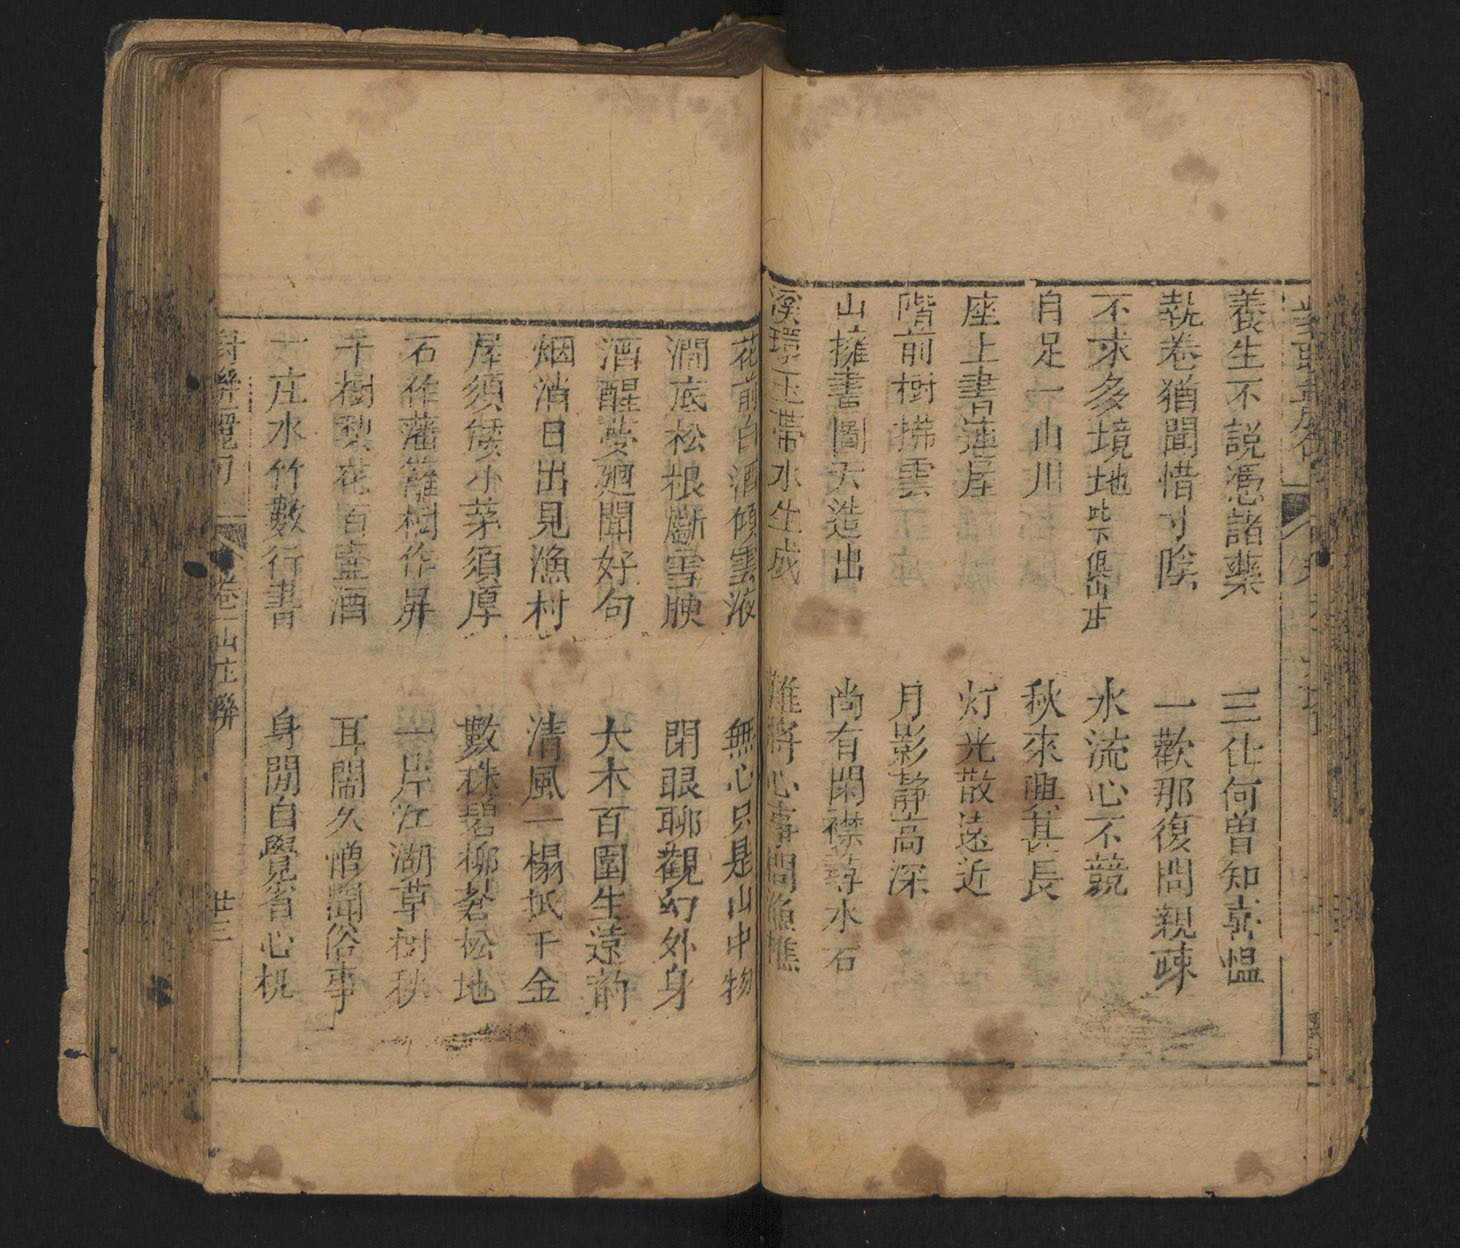 養生不說憑諸藥 三仕何曾知喜愠
執卷猶聞惜寸陰 一歡那復問親疎
不求多境地 此下俱山庄 水流心不競
自足一山川 秋來興甚長
座上書連屋 灯光散遠近
階前樹拂雲 月影静高深
山擁書圖天造出 尚有閑襟尋水石
溪環玉帶水生成 難將心事問漁樵
花前白酒傾雲液 無心只是山中物
澗底松根斸雪腴 閉眼聊觀幻外身
酒醒夢廻聞好句 大木百圍生遠韵
烟消日出見漁村 清風一榻抵千金
屋須矮小茅須厚 數株碧柳蒼松地
石作藩籬樹作屏 一岸江湖草樹秋
千樹梨花百壺酒 耳閙久憎聞俗事
一庄水竹數行書 身閒自覺省心机
卷一山庄聯 廿三